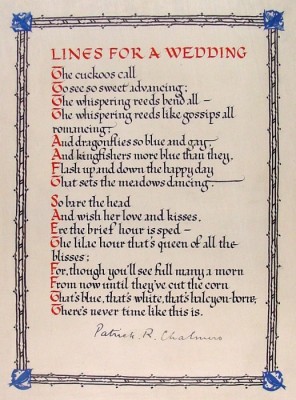 LINES FOR A WEDDING
The cuckoos call
To see so sweet advancing;
The whispering reeds bend all –
The whispering reeds like gossips all
romancing:
And dragonflies so blue and gay,
And kingfishers more blue than they,
Flash up and down the happy day
That sets the meadows dancing.
So bare the head
And wish her love and kisses,
Ere the brief hour is sped –
The lilac hour that's queen of all the
blisses;
For, though you'll see full many a morn
From now until they've cut the corn
That's blue, that's white, that's halcyon-born,
There's never time like this is.
Patrick. R. Chalmers